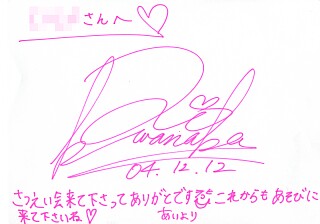 さんへ♡
04.12.12
さつえい会来て下さってありがとです これからもあそびに
来て下さいね♡
あいより